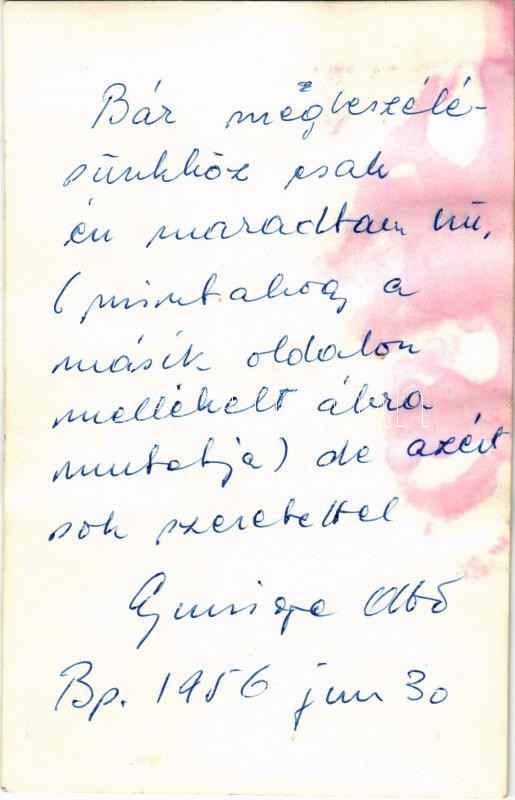 Bár megbeszélé-
sünkhöz csak
én maradtam hű,
(mintahogy a
másik oldalon
mellékelt ábra
mutatja) de azért
sok szeretettel
Ottó
Bp. 1956 jun 30